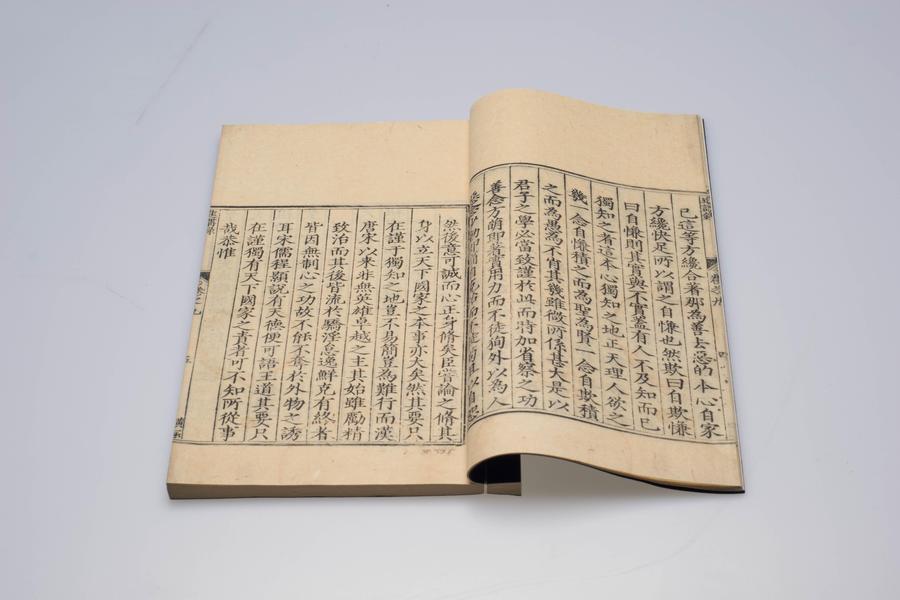 己這等方纔合著那為善去惡的本心自家
方纔快足所以謂之自慊也然欺曰自欺慊
曰自慊則其實與不實蓋有人不及知而己
獨知之者這本心獨知之地正天理人欲之
幾一念自慊積之而為聖為賢一念自欺積
之而為愚為不肖其幾雖微所係甚大是以
君子之學必當致謹於此而時加省察之功
善念方萌即著實用力而不徒狥外以為人
然後意可誠而心正身修矣臣嘗論之脩其
身以立天下國家之本事亦大矣然其要只
在謹于獨知之地豈不易簡豈為難行而漢
唐宋以來非無英雄卓越之主其始雖勵精
致治而其後皆流於驕淫怠逸鮮克有終者
皆因無制心之功故不能不奪於外物之誘
耳宋儒程顥說有天德便可語王道其要只
在謹獨有天下國家之責者可不知所從事
哉恭惟